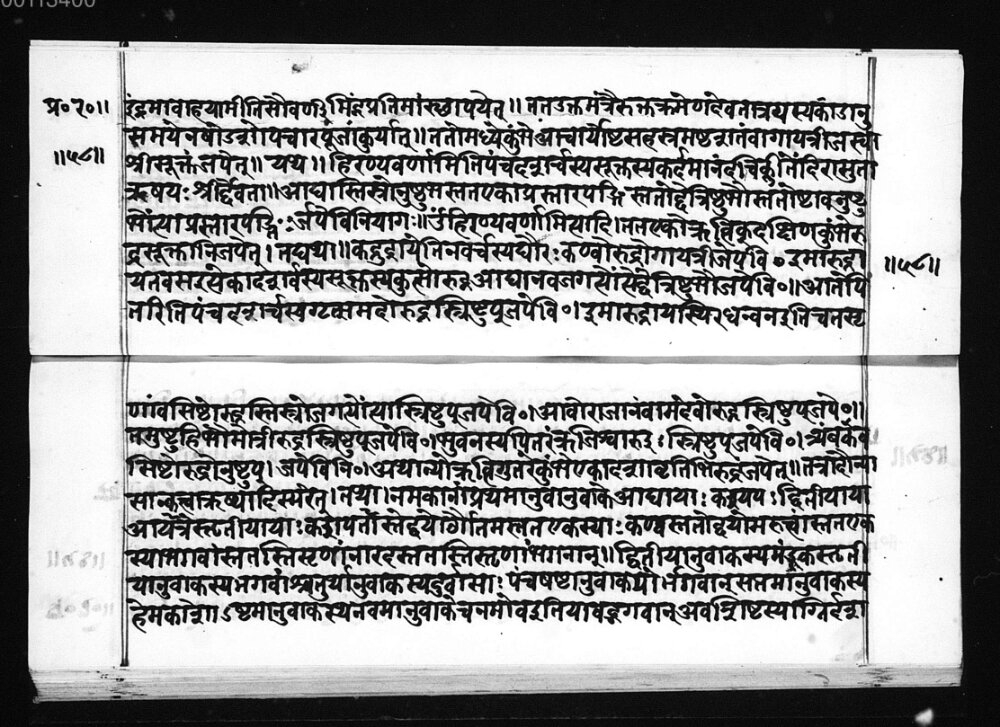 00113400
प्र०र०॥
॥५८॥
इंद्रमावाहयामीतिसौवर्ण इमिंद्रप्रतिमांस्थापयेत्॥ततउक्तमंत्रैरुक्तक्रमेणदेवतात्रयस्यकांडानु
समयेनषोडशोपचारपूजांकुर्यात्॥ततोमध्येकुंभेआचार्योष्टसहस्रमष्टशतंवागायत्रीजप्त्वा
श्रीसूक्तंजपेत्॥यथा॥हिरण्यवर्णामितिपंचदशर्चस्यसूक्तस्यकर्दमानंदचिक्लीतेंदिरासुता
ऋषयःश्रीर्देवता॥आद्यास्तिस्रोनुष्टुभस्ततएकाप्रस्तारपङ्क्तिस्ततोद्वेत्रिष्टुभौस्ततोष्टावनुष्टु
भोंत्याप्रस्तारपङ्क्तिःजपेविनियोगः॥ॐहिरण्यवर्णामित्यादि।ततएकोऋत्विक्दक्षिणकुंभेरु
द्रसूक्तानिजपेत्।तद्यथा॥कद्रुद्रायेतिनवर्चस्यघोरःकण्वोरुद्रोगायत्रीजपेवि०इमारुद्रा
॥५८॥
यतवसइत्येकादशर्चस्यसूक्तस्यकुत्सोरुद्रआद्यानवजगत्योंत्येद्वेत्रिष्टुभौजपेवि०॥आतेपि
तरितिपंचदशर्चस्यगृत्समदोरुद्रस्त्रिष्टुप्जपेवि०।इमारुद्रायस्थिरधन्वनइतिचतसृ
णांवसिष्टोरुद्रस्तिस्रोजगत्योंत्यास्त्रिष्टुप्जपेवि०।आवोराजानंवामदेवोरुद्रस्त्रिष्टुप्जपे०॥
तमुष्टुहिभौमोत्रीरुद्रस्त्रिष्टुप्जपेवि०।भुवनस्यपितरंऋजिश्वारुद्रःस्त्रिष्टुप्जपेवि०।त्र्यंबकंव
सिष्टोरुद्रोनुष्टुप्।जपेविनि०।अथान्योऋत्विगुत्तरेकुंभेएकादशावृत्तिभिरुद्रंजपेत्॥तत्रादौन्या
सान्कृत्वाऋष्यादिस्मरेत्।तद्यथा।नमकानांप्रथमानुवानुवाकेआद्यायाःकश्यपःद्वितीयाया
आत्रेयस्तृतीयायाःकश्यपस्तद्वयोर्गौतमस्ततएकस्याःकण्वस्ततोद्वयोमरुत्वांस्ततएक
स्यामार्गवांस्ततस्तिसृणांनारदस्ततस्तिसृणांभगवान्॥द्वितीयानुवाकस्यमंडूकस्तृती
यानुवाकस्यभगवांश्चतुर्थानुवाकस्यदुर्वासाःपंचषष्टानुवाकयोर्भगवान्सप्तमानुवाकस्य
हेमकोशोऽष्टमानुवाकस्यनवमानुवाकेचनमोवइतियावद्भगवान्अवशिष्टस्याग्निर्दशा